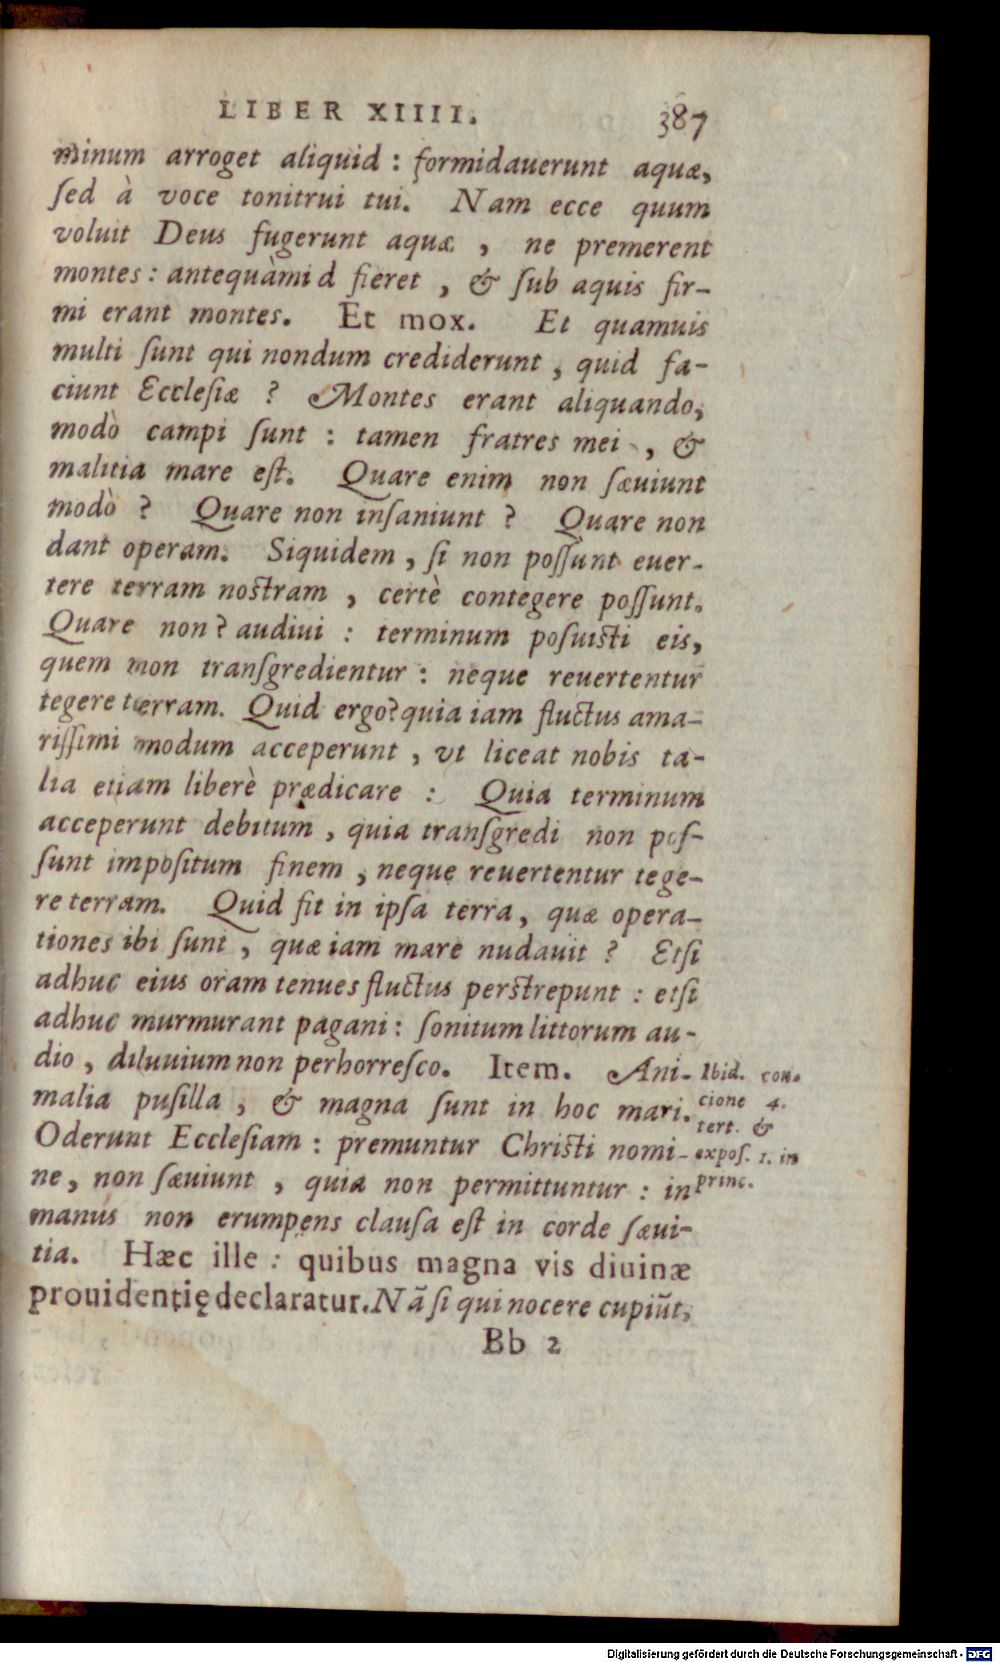 LIBER XIIII. 387
minum arroget aliquid : formidauerunt aquæ,
ſed à voce tonitrui tui. Nam ecce quum
voluit Deus fugerunt aquæ , ne premerent
montes : antequàmi d fieret , & ſub aquis fir-
mi erant montes. Et mox. Et quamuis
multi ſunt qui nondum crediderunt , quid fa-
ciunt Eccleſiæ ? Montes erant aliquando,
modò campi ſunt : tamen fratres mei , &
malitia mare eſt. Quare enim non ſæuiunt
modò ? Quare non inſaniunt ? Quare non
dant operam. Siquidem , ſi non poſſunt euer-
tere terram noſtram , certè contegere poſſunt.
Quare non ? audiui : terminum poſuiſti eis,
quem non tranſgredientur : neque reuertentur
tegere terram. Quid ergo? quia iam fluctus ama-
riſſimi modum acceperunt , vt liceat nobis ta-
lia etiam liberè prædicare : Quia terminum
acceperunt debitum , quia tranſgredi non poſ-
ſunt impoſitum finem , neque reuertentur tege-
re terram. Quid fit in ipſa terra, quæ opera-
tiones ibi ſunt , quæ iam mare nudauit ? Etſi
adhuc eius oram tenues fluctus perſtrepunt : etſi
adhuc murmurant pagani : ſonitum littorum au-
dio , diluuium non perhorreſco. Item. Ani-
malia puſilla , & magna ſunt in hoc mari.
Oderunt Eccleſiam : premuntur Chriſti nomi-
ne, non ſæuiunt , quia non permittuntur : in
manus non erumpens clauſa eſt in corde ſæui-
tia. Hæc ille : quibus magna vis diuinæ
prouidentię declaratur. Nā ſi qui nocere cupiūt,
Bb 2
Ibid. con-
cione 4.
tert. &
expoſ. 1. in
princ.
Digitalisierung gefördert durch die Deutsche Forschungsgemeinschaft - DFG